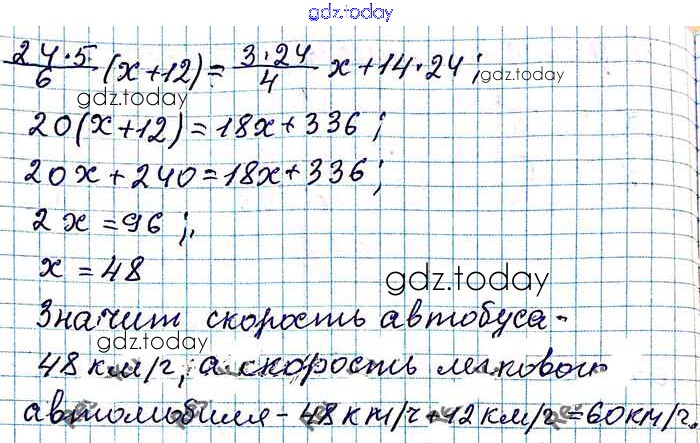 gdz.today
24·5/6 (x+12) = 3·24/4 x+14·24; gdz.today
gdz.today
20(x+12)=18x+336;
20x+240=18x+336;
2x=96;
x=48
gdz.today
Значит скорость автобуса-
gdz.today
48км/г, а скорость легкового
автомобиля-48км/г+12км/г=60км/г.